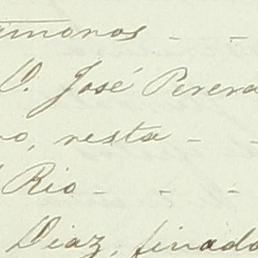 timonos - -
D. José Perera
vo, resta - -
Rio - - -
Diaz, finado